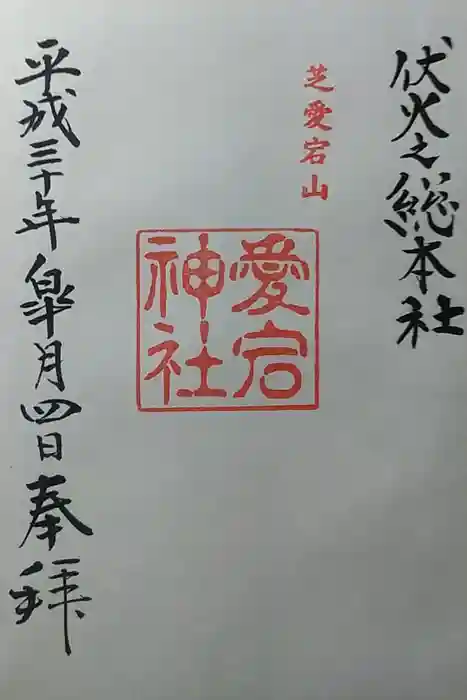 伏火之總本社
芝愛宕山
愛宕
神社
平成三十年皐月四日奉拜